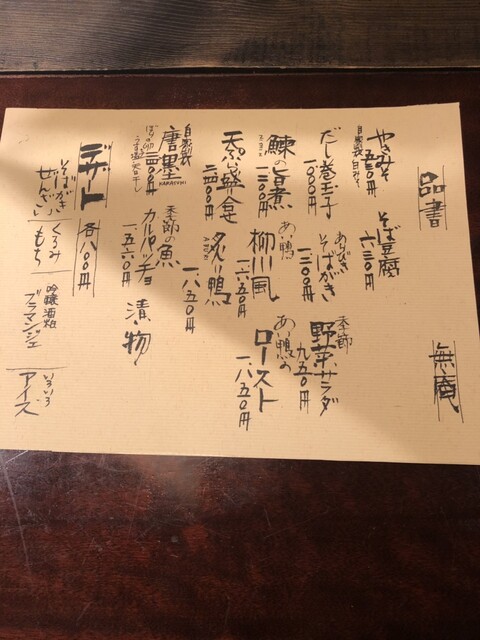 品書
無庵
やきみそ
五五〇円
自家製白みそ
そば豆腐
六三〇円
だし巻玉子
一、〇〇〇円
あらびき
そばがき
一、三〇〇円
季節
野菜サラダ
九五〇円
鰊の旨煮
一、二〇〇円
あい鴨
柳川風
一、六五〇円
あい鴨の
ロースト
一、八五〇円
天ぷら盛り合せ
炙り鴨
一、八五〇円
自家製
唐墨
KARASUMI
季節の魚
カルパッチョ
一、五六〇円
漬け物
デザート
各八〇〇円
そばがき
ぜんざい
くるみ
もち
吟醸酒粕
ブラマンジェ
いろいろ
アイス